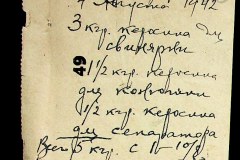 7 Августа 1942
3 кгр. керосина для
свинярки
49
1 1/2 кгр. керосина
для конюшни
1/2 кгр. керосина
для сепаратора
Всего 5 кгр. с 1-10/8